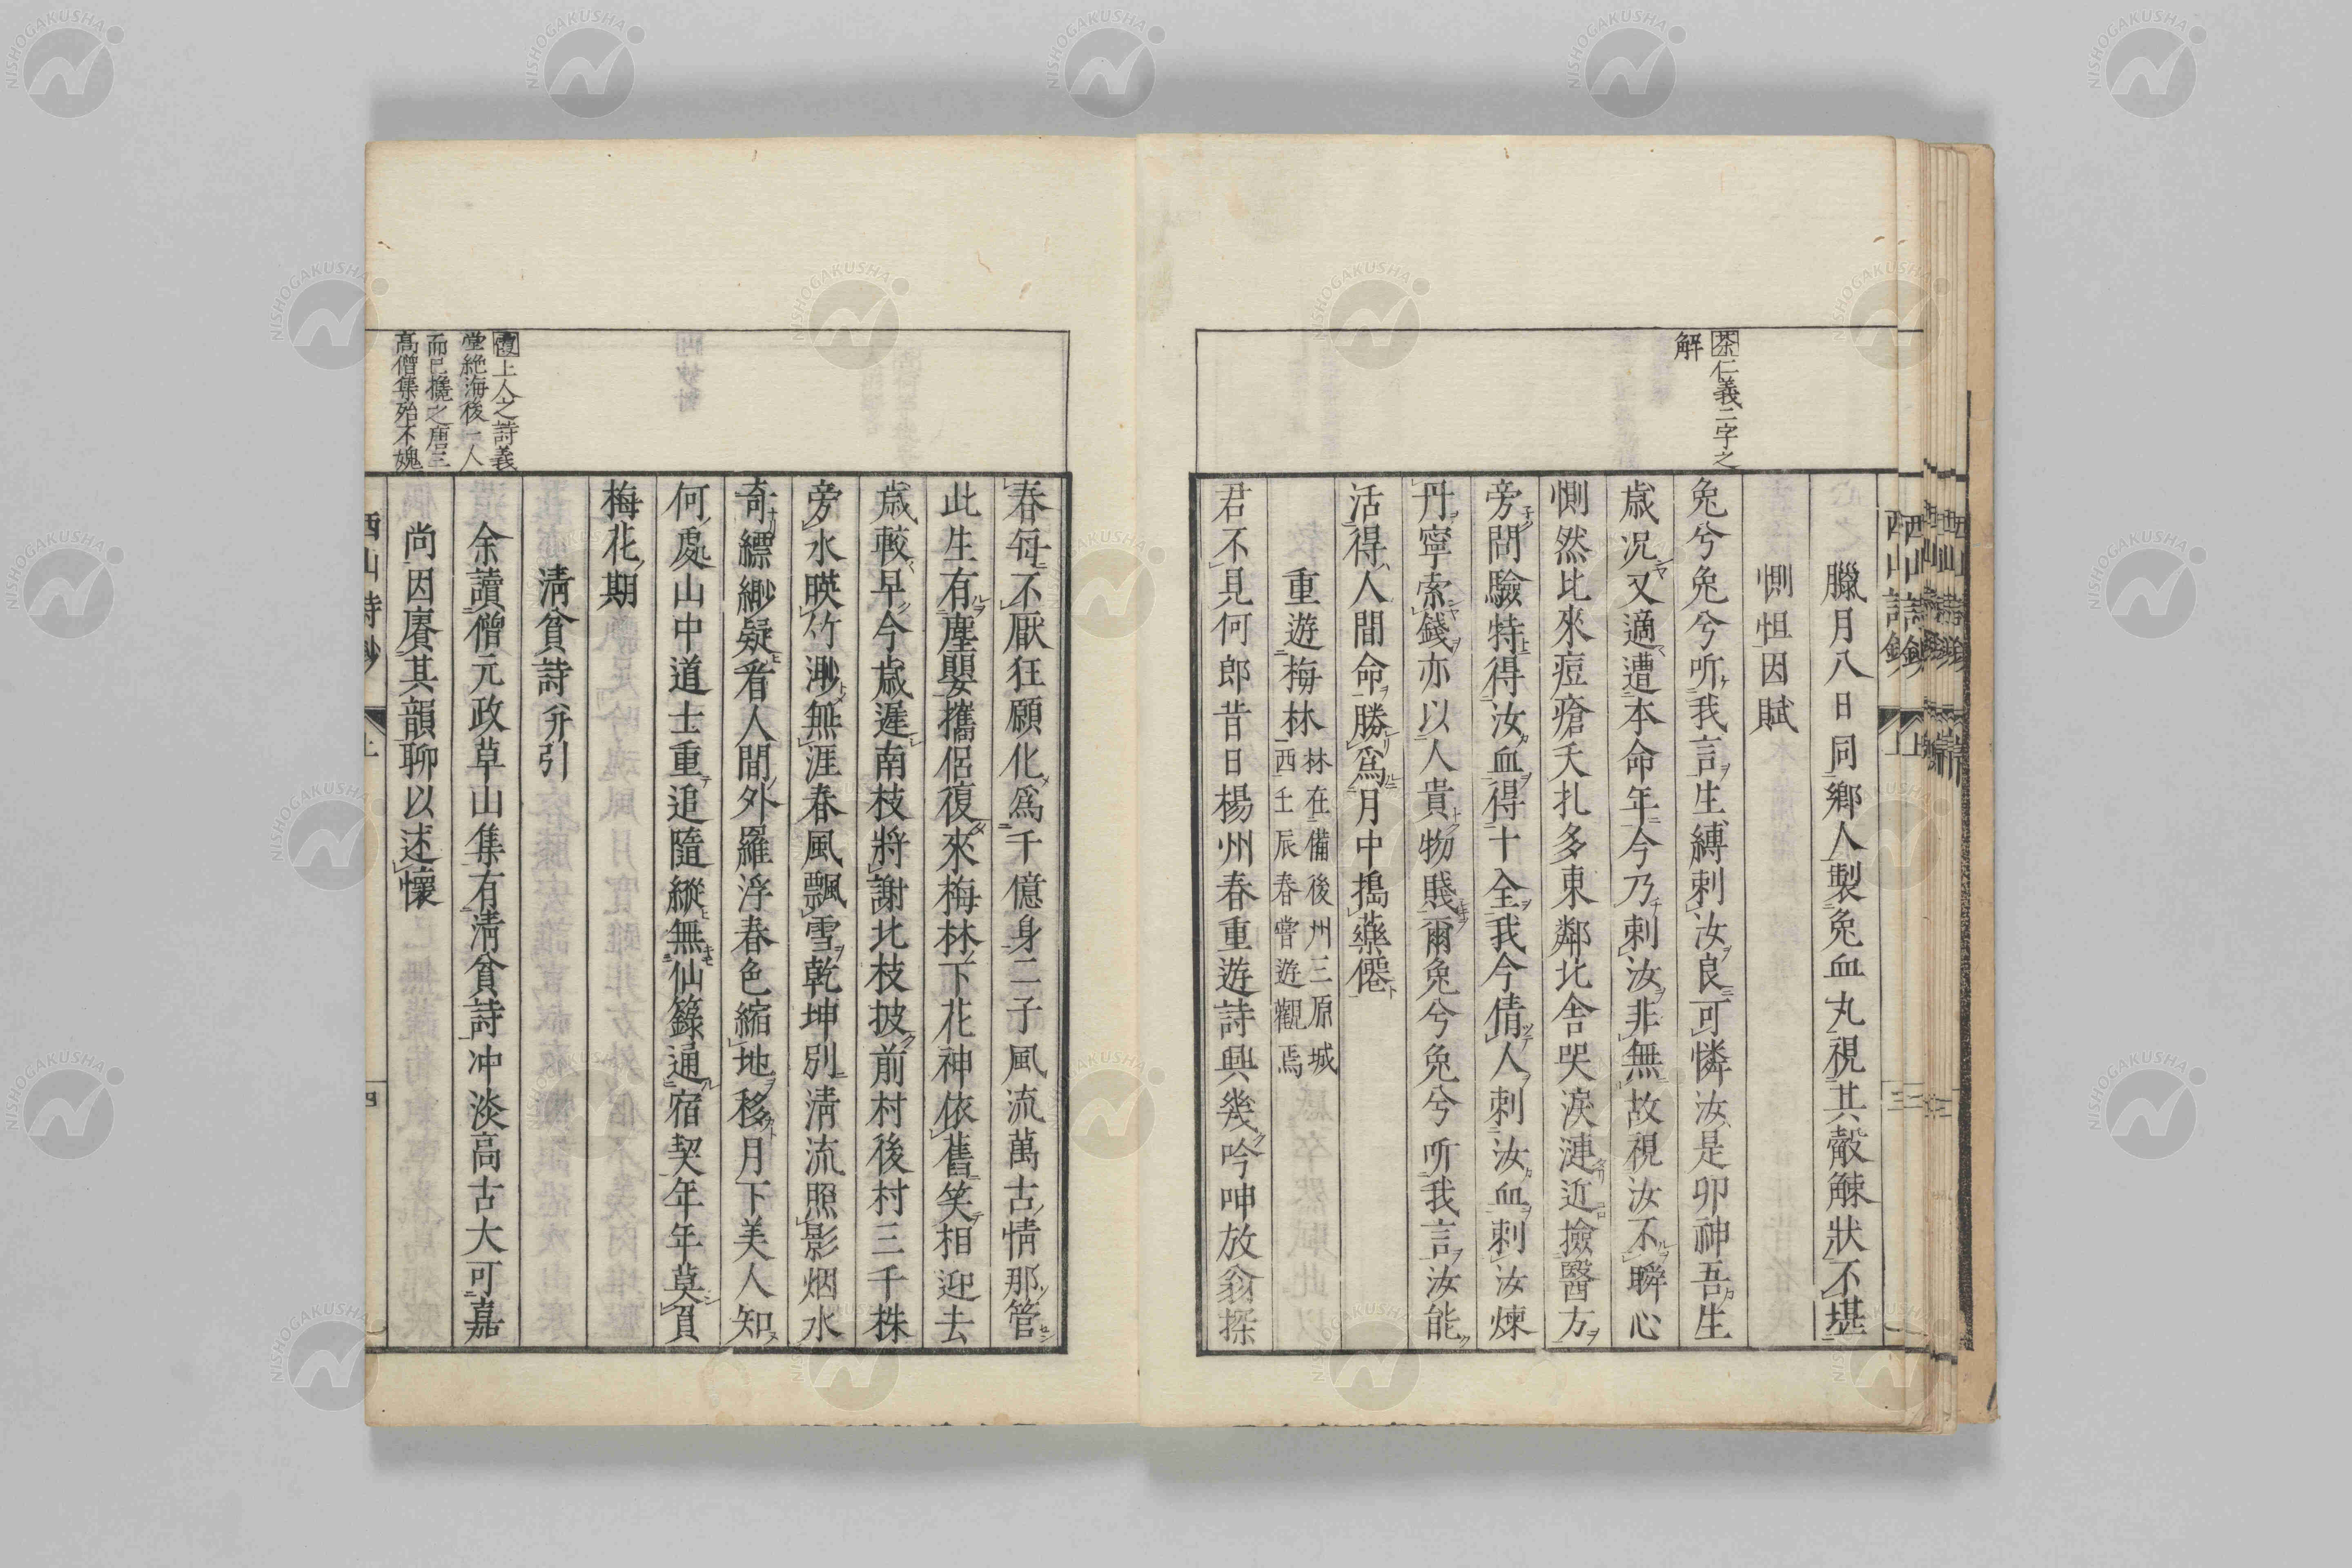 茶仁義二字之
解
臘月八日同郷人製兔血丸視其觳觫狀不堪
惻怛因賦
兔兮兔兮听我言生縛刺汝良可憐汝是卯神吾生
歳况又適遭本命年今乃刺汝非無故視汝不瞬心
惻然比來痘瘡夭札多東鄰北舍哭淚漣近撿醫方
旁問驗特得汝血得十全我今倩人刺汝血刺汝煉
丹寧索錢亦以人貴物賤爾兔兮兔兮听我言汝能
活得人間命勝為月中搗藥僊
重遊梅林林在備後州三原城
西壬辰春嘗遊觀焉
君不見何郎昔日楊州春重遊詩興幾吟呻放翁探
春每不厭狂願化為千億身二子風流萬古情那管
此生有塵嬰攜侶復來梅林下花神依舊笑相迎去
歳較早今歳遲南枝將謝北枝披前村後村三千株
旁水暎竹渺無涯春風飄雪乾坤別清流照影烟水
奇縹緲疑看人間外羅浮春色縮地移月下美人知
何處山中道士重追隨縱無仙籙通宿契年年莫負
梅花期
清貧詩并引
余讀僧元政草山集有清貧詩冲淡高古大可嘉
尚因賡其韻聊以述懷
霞上人之詩義
堂絶海後一人
而已攙之唐三
高僧集殆不媿
西山詩鈔
上
四
NISHOGAKUSHA